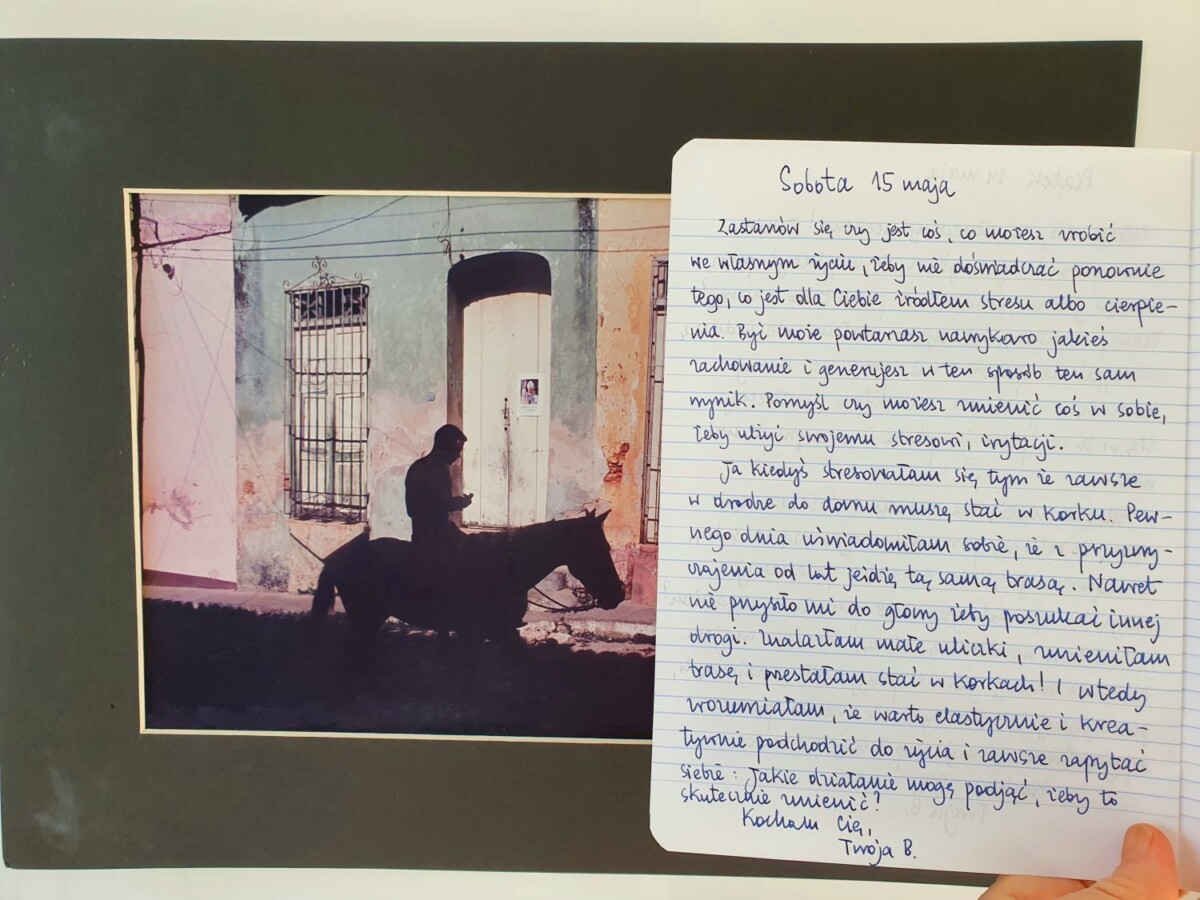 Sobota 15 maja
Zastanów się czy jest coś, co możesz zrobić
we własnym życiu, żeby nie doświadczać ponownie
tego, co jest dla Ciebie źródłem stresu albo cierpie-
nia. Być może powtarzasz nawykowo jakieś
zachowanie i generujesz w ten sposób ten sam
wynik. Pomyśl czy możesz zmienić coś w sobie,
żeby ulżyć swojemu stresowi, irytacji.
Ja kiedyś stresowałam się tym że zawsze
w drodze do domu muszę stać w korku. Pew-
nego dnia uświadomiłam sobie, że z przyzwy-
czajenia od lat jeżdżę tą samą trasą. Nawet
nie przyszło mi do głowy żeby poszukać innej
drogi. Znalazłam małe uliczki, zmieniłam
trasę i przestałam stać w korkach! I wtedy
zrozumiałam, że warto elastycznie i krea-
tywnie podchodzić do życia i zawsze zapytać
siebie: Jakie działanie mogę podjąć, żeby to
skutecznie zmienić?
Kocham Cię,
Twoja B.